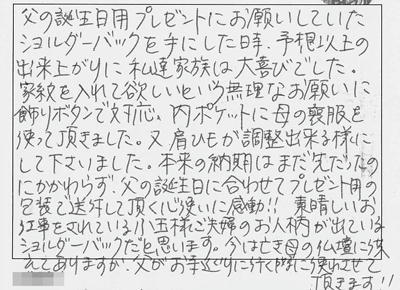 父の誕生日用プレゼントにお願いしていた
ショルダーバックを手にした時、予想以上の
出来上がりに私達家族は大喜びでした。
家紋を入れて欲しいという無理なお願いに
飾りボタンで対応、内ポケットに母の喪服を
使って頂きました。又肩ひもが調整出来る様に
して下さいました。本来の納期はまだ先だったの
にかかわらず、父の誕生日に合わせてプレゼント用の
包装で送付して頂く心使いに感動!! 素晴しいお
仕事をされている小玉様ご夫婦のお人柄が出ている
ショルダーバックだと思います。今は亡き母の仏壇に供
えてありますが、父がお寺巡りに行く際に使わせて
頂きます!!